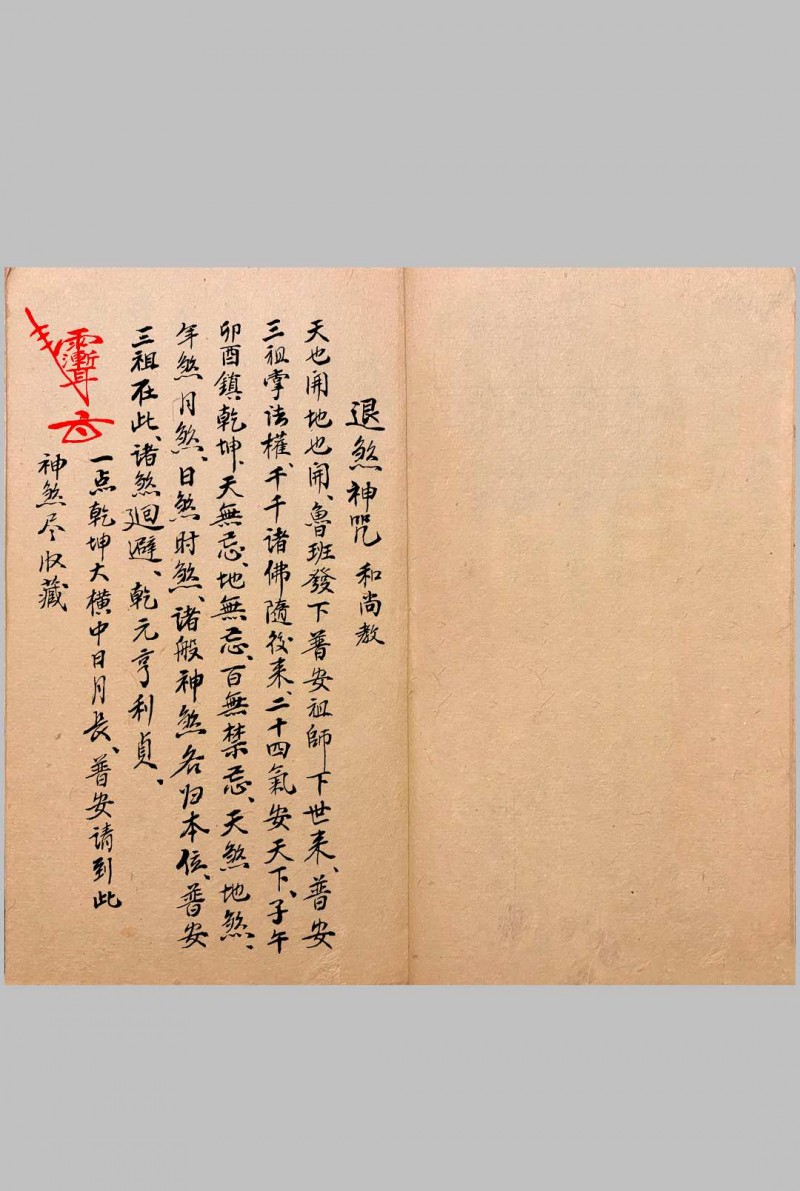 退煞神咒 和尚教
天也開地也開、魯班發下普安祖師下世来、普安
三祖掌法權、千千诸佛隨後来、二十四氣安天下、子午
卯酉鎮乾坤、天無忌、地無忌、百無禁忌、天煞地煞、
年煞月煞、日煞时煞、诸般神煞各归本位、普安
三祖在此、诸煞廻避、乾元亨利貞、
一点乾坤大橫中日月長、普安请到此
神煞尽收藏